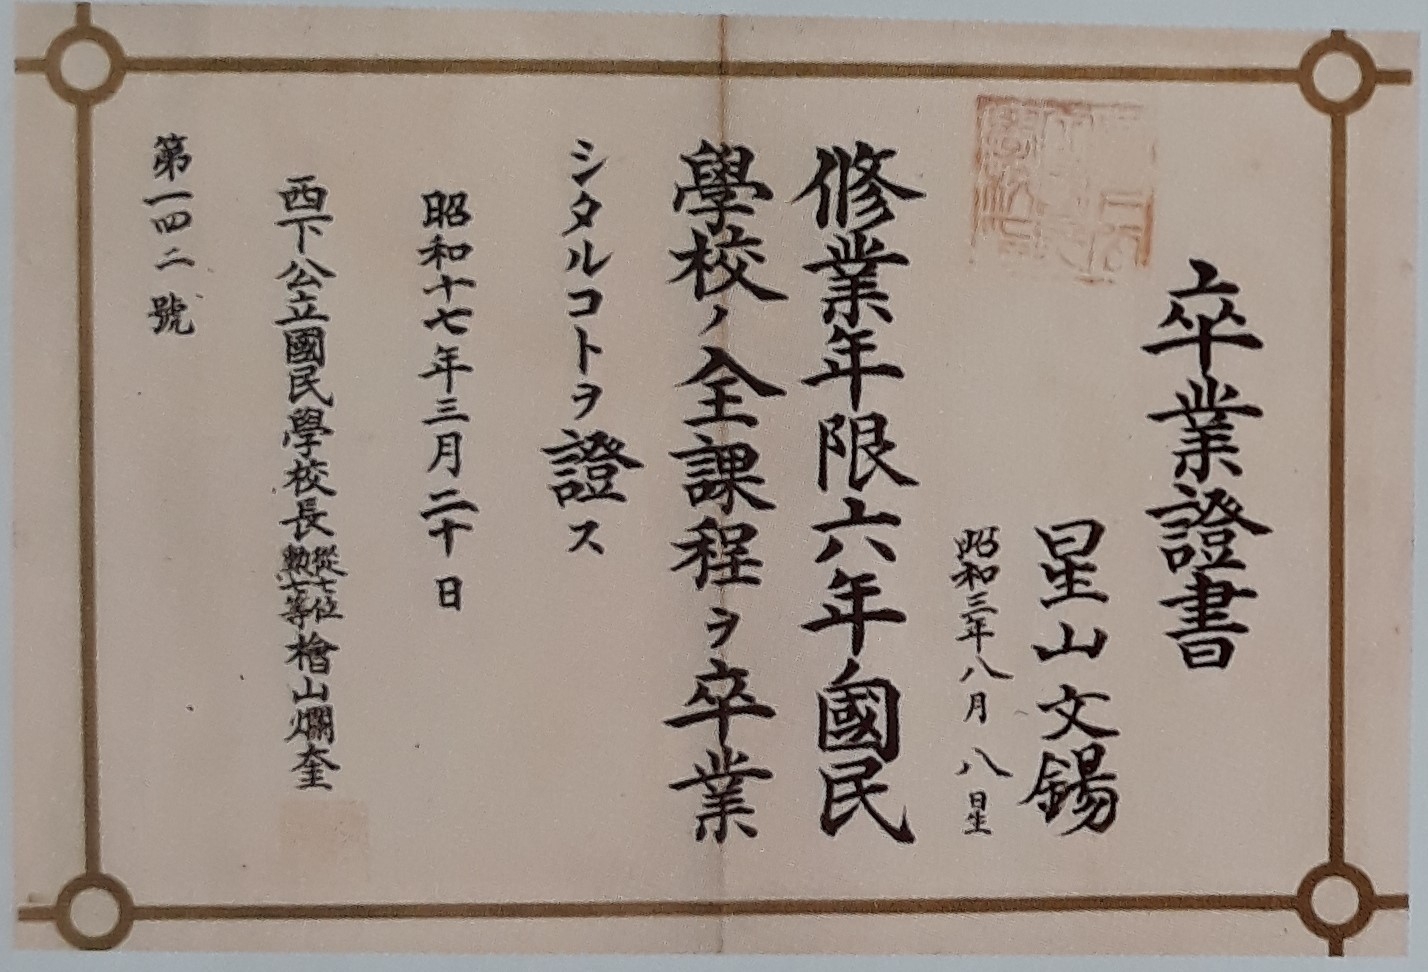 卒業證書
星山文錫
昭和三年八月八日生
修業年限六年ノ國民
學校ノ全課程ヲ卒業
シタルコトヲ證ス
昭和十七年三月二十日
西下公立國民學校長從七位勲七等檜山爛奎
第一四二號